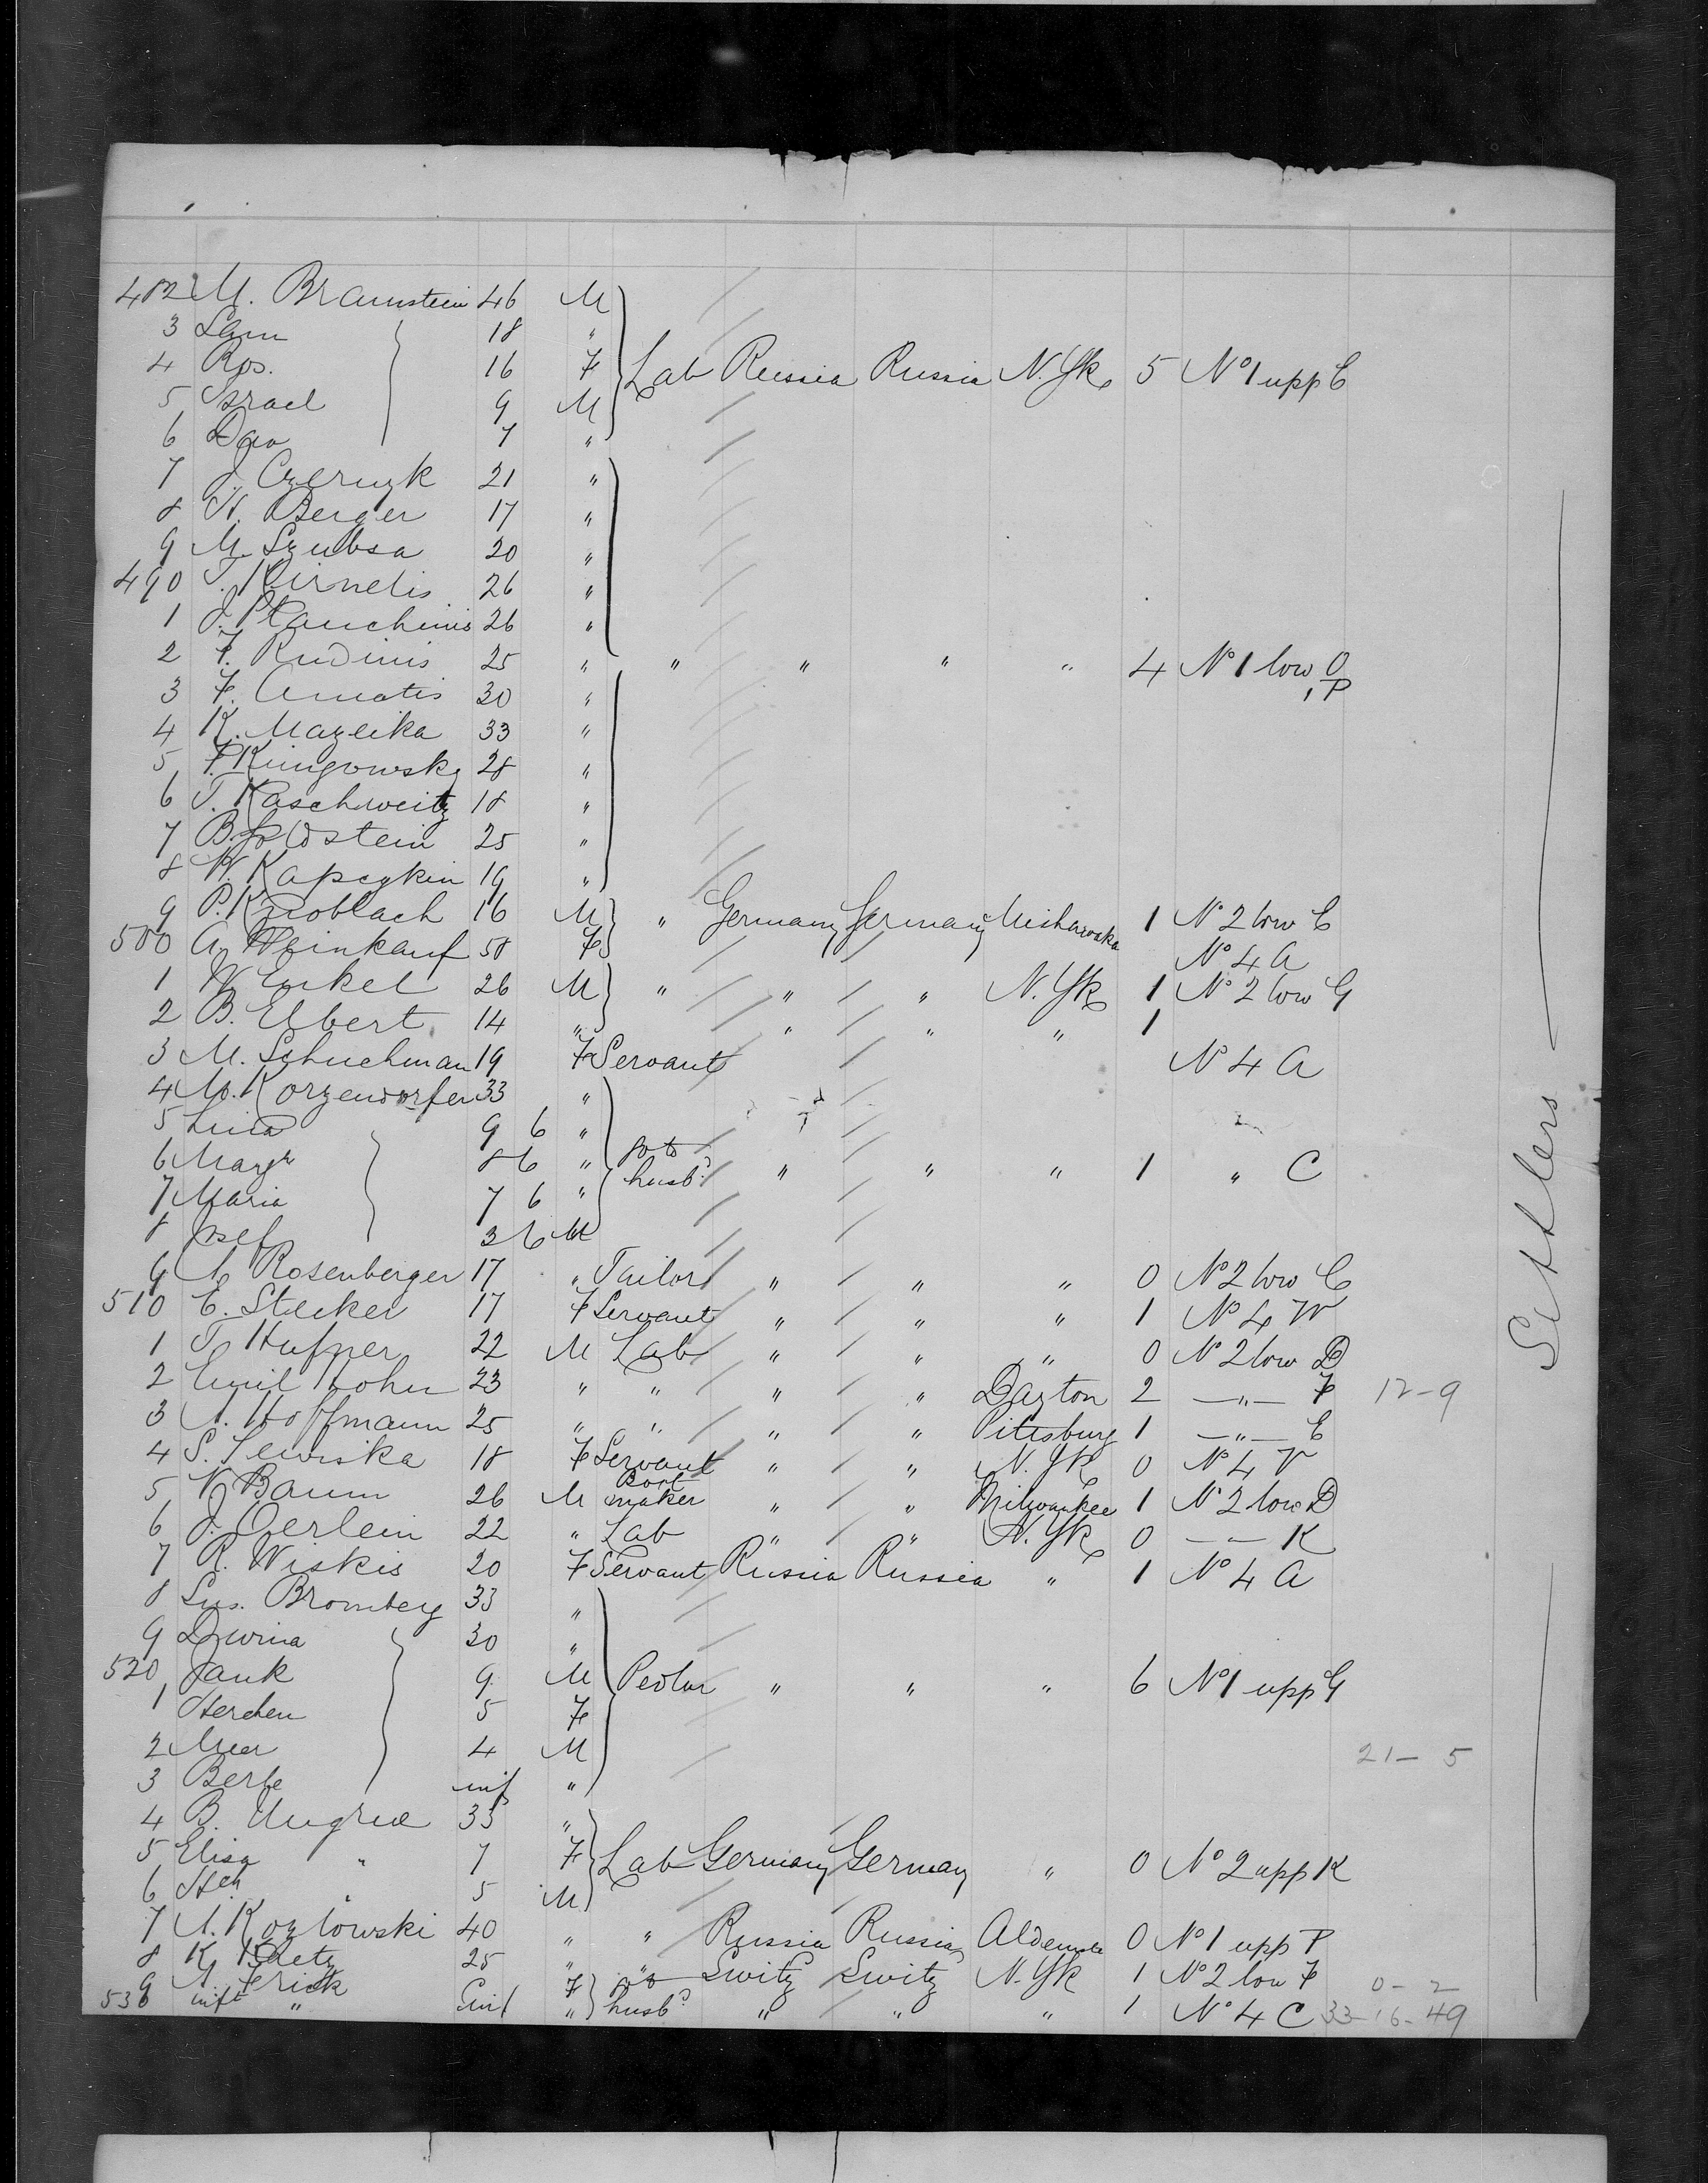 482 M. Braunstein 46 M
3 Sam 18 "
4 Ros. 16 F Lab Russia Russia N.Yk 5 No 1 upp C
5 Israel 9 M
6 Dav 7 "
7 J. Czernyk 21 "
8 H. Berger 17 "
9 M. Szubsa 20 "
490 T. Kirnelis 26 "
1 J. Plauchinis 26 "
2 F. Rudinis 25 " " " " " 4 No 1 low O
3 F. Amatis 30 " P
4 K. Mazeika 33 "
5 F. Kungowsky 28 "
6 T. Kaschweitz 18 "
7 B. Goldstein 25 "
8 W. Kapcykin 19 "
9 P. Knoblach 16 M " Germany Germany Mishawaka 1 No 2 low C
500 A. Weinkauf 58 F No 4 A
1 W. Enkel 26 M " " " N.Yk 1 No 2 low G
2 B. Elbert 14 " " " " 1
3 M. Schuchman 19 F Servant No 4 A
4 M. Korzendorfer 33 "
5 Lina 9 6 "
6 Margt 8 6 " go to husbd " " " 1 " C
7 Maria 7 6 "
8 Josef 3 6 M
9 A. Rosenberger 17 " Tailor " " " 0 No 2 low C
510 E. Stecker 17 F Servant " " " 1 No 4 W
1 T. Hufner 22 M Lab " " " 0 No 2 low D
2 Emil Hohn 23 " " " " Dayton 2 — " — F 12-9
3 A. Hoffmann 25 " " " " Pittsburg 1 — " — E
4 S. Lewiska 18 F Servant " " N.Yk 0 No 4 V
5 W. Baum 26 M Bootmaker " " Milwaukee 1 No 2 low D
6 J. Oerlein 22 " Lab " " N.Yk 0 — — K
7 R. Wiskis 20 F Servant Russia Russia " 1 No 4 A
8 Sus. Bromberg 33 "
9 Dwina 30 "
520 Jank 9 M Pedlar " " " 6 No 1 upp G
1 Herchen 5 F
2 Meer 4 M 21-5
3 Berle inf "
4 B. Ungrud 33 "
5 Elisa " 7 F Lab Germany Germany " 0 No 2 upp K
6 Hch " 5 M
7 A. Kozlowski 40 " " Russia Russia 0 No 1 upp P
8 K. Baetz 25 " " Switz Switz N.Yk 1 No 2 low F
9 A. Frick F go to 0-2
530 inft " inf " husbd " " " 1 No 4 C 33-16-49
Settlers